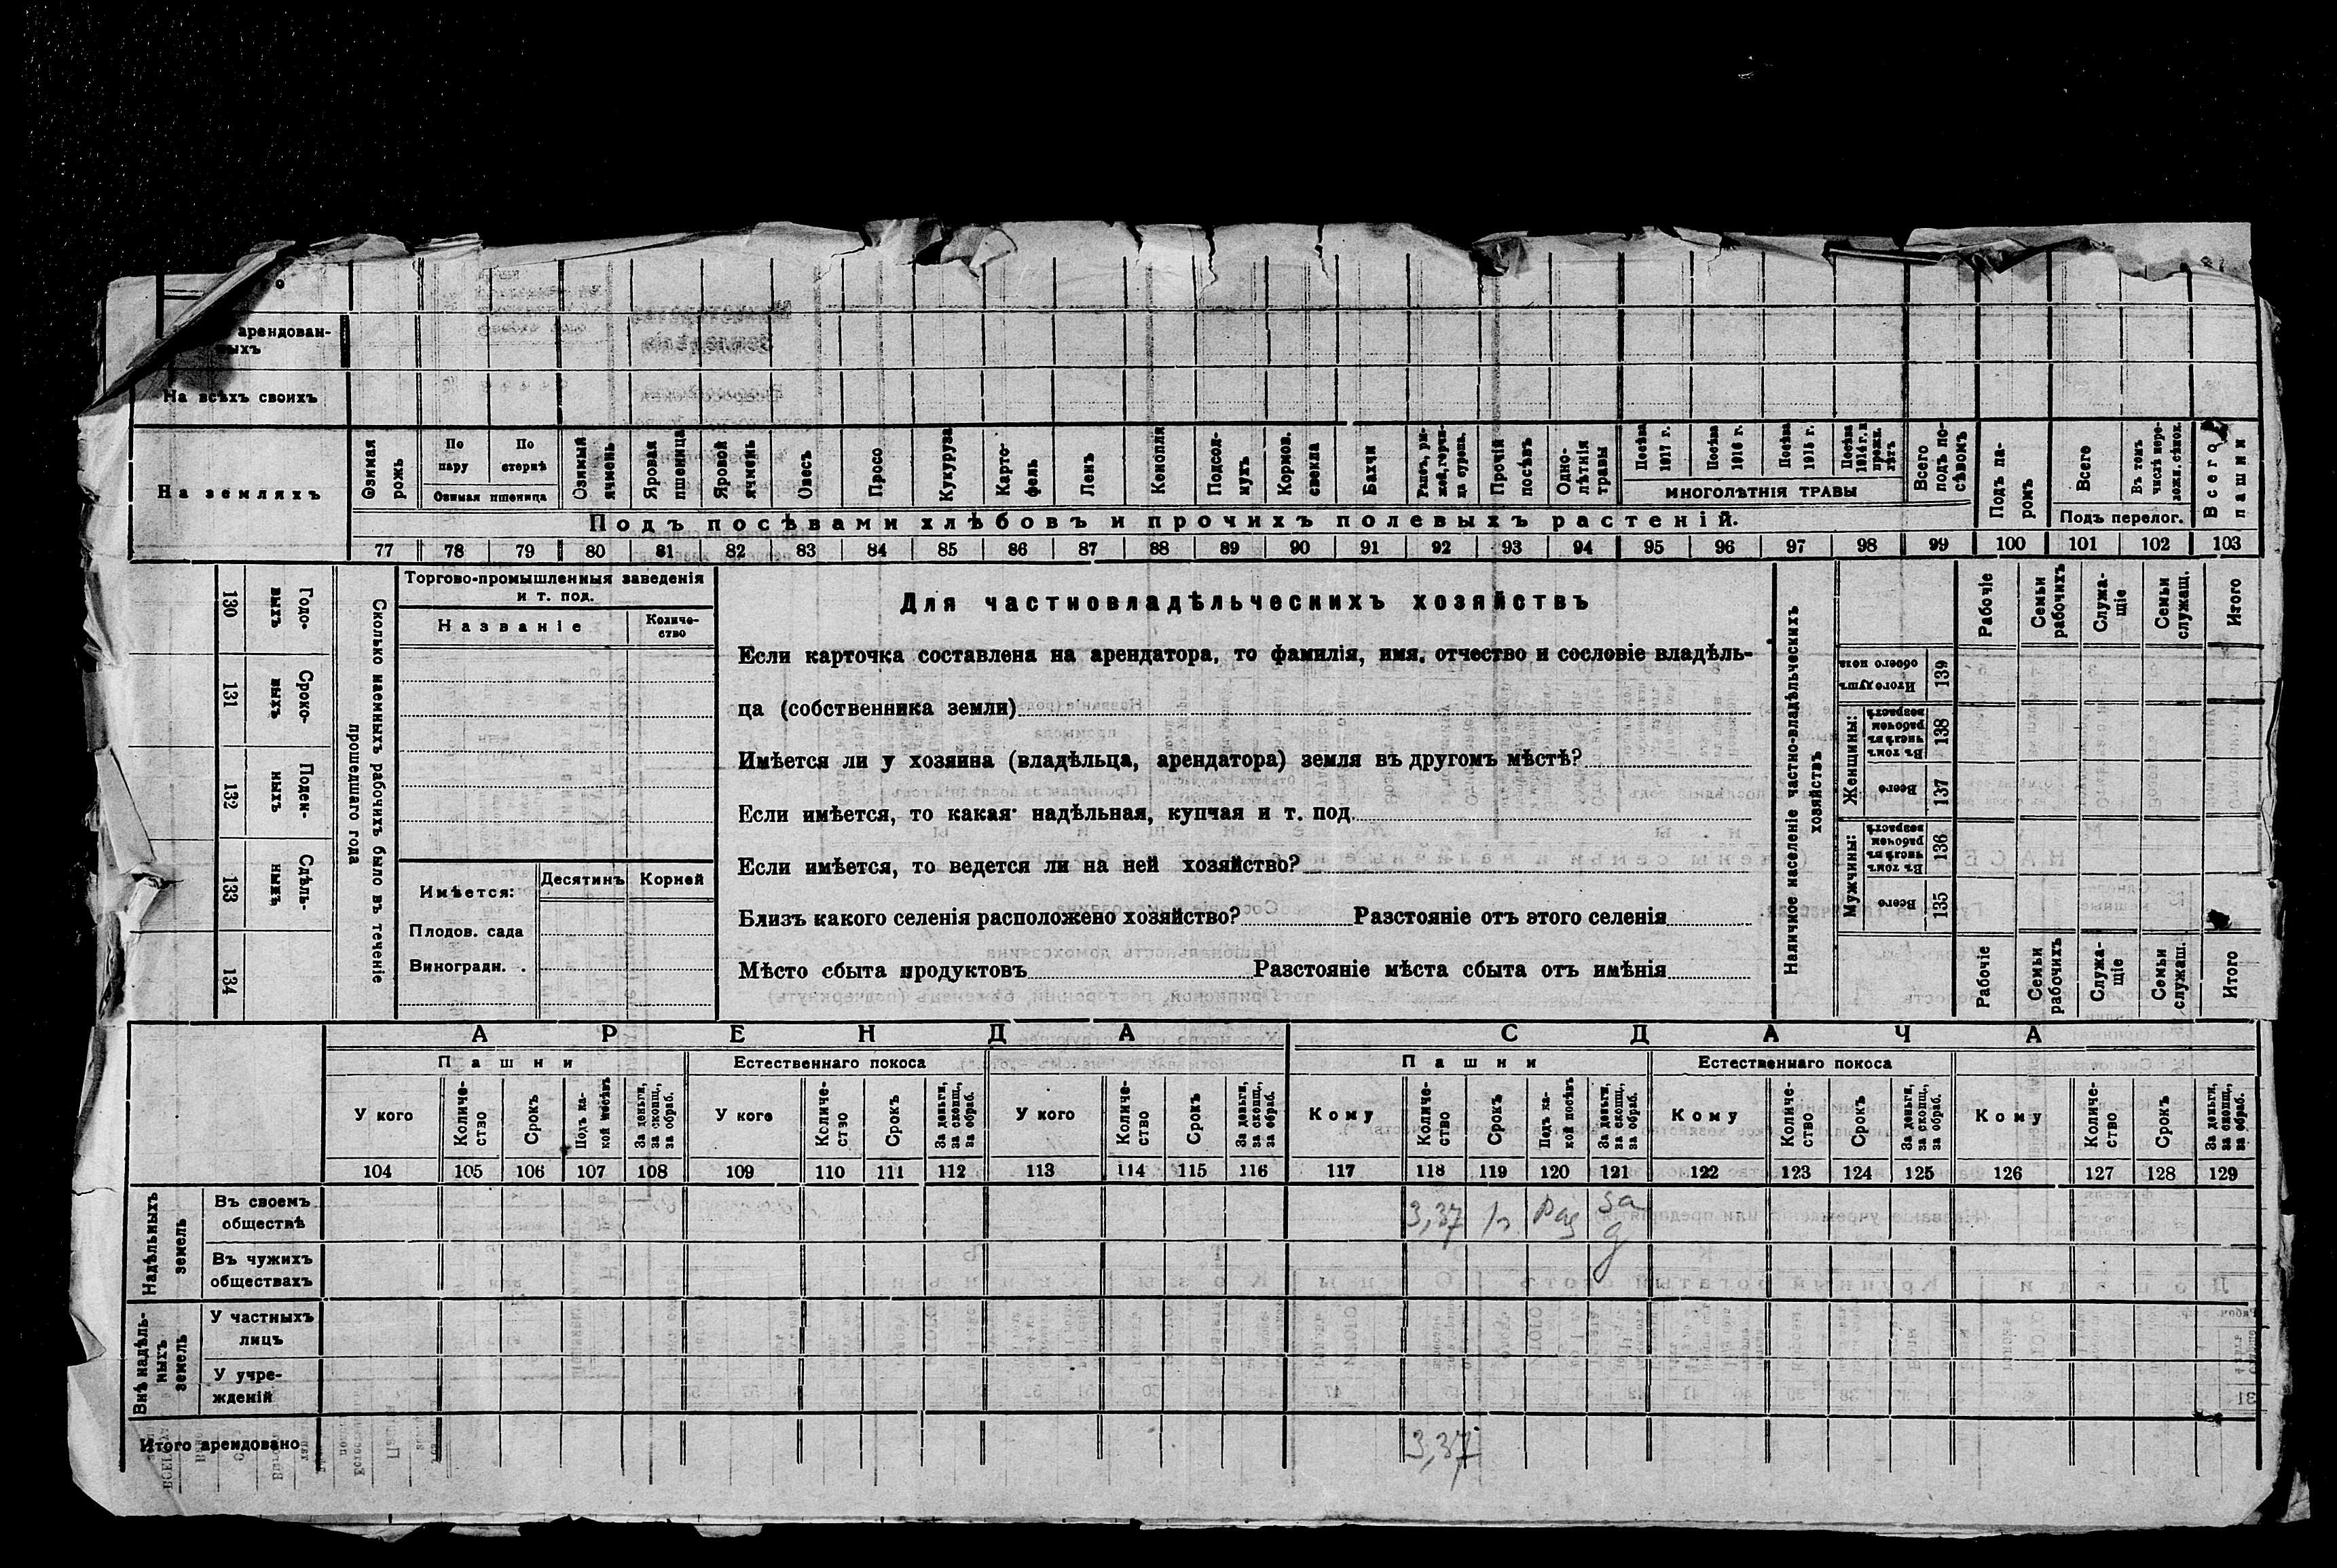 арендован-
ыхъ
На всѣхъ своихъ
На земляхъ
Озимая рожь
По пару
По стернѣ
Озимая пшеница
Озимый ячмень
Яровая пшеница
Яровой ячмень
Овесъ
Просо
Кукуруза
Карто-
фель
Ленъ
Конопля
Подсол-
нухъ
Кормов.
свекла
Бахчи
Рапсъ, ры-
жей, горчи-
ца сурепа.
Прочій
посѣвъ
Одно-
лѣтнія
травы
Посѣва
1917 г.
Посѣва
1916 г.
Посѣва
1915 г.
Посѣва
1914 г. и
прежн.
лѣтъ
МНОГОЛѢТНІЯ ТРАВЫ
Всего
подъ по-
сѣвомъ
Подъ па-
ромъ
Всего
Въ томъ
числѣ пере-
ложн. сѣнок.
Подъ перелог.
Всего
пашни
Подъ посѣвами хлѣбовъ и прочихъ полевыхъ растеній.
77 78 79 80 81 82 83 84 85 86 87 88 89 90 91 92 93 94 95 96 97 98 99 100 101 102 103
130 Годо-
выхъ
131 Сроко-
выхъ
132 Поден-
ныхъ
133 Сдѣль-
ныхъ
134
Сколько наемныхъ рабочихъ было въ теченіе
прошедшаго года
Торгово-промышленныя заведенія
и т. под.
Названіе
Количе-
ство
Имѣется:
Десятинъ
Корней
Плодов. сада
Виноградн. .
Для частновладѣльческихъ хозяйствъ
Если карточка составлена на арендатора, то фамилія, имя, отчество и сословіе владѣль-
ца (собственника земли)
Имѣется ли у хозяина (владѣльца, арендатора) земля въ другомъ мѣстѣ?
Если имѣется, то какая надѣльная, купчая и т. под.
Если имѣется, то ведется ли на ней хозяйство?
Близъ какого селенія расположено хозяйство? Разстояніе отъ этого селенія
Мѣсто сбыта продуктовъ Разстояніе мѣста сбыта отъ имѣнія
Наличное населеніе частно-владѣльческихъ
хозяйствъ
Рабочіе
Семьи
рабочихъ
Служа-
щіе
Семьи
служащ.
Итого
Итого душъ
обоего пола
139
Женщины:
Въ томъ
числѣ въ
рабочемъ
возрастѣ
138
Всего
137
Мужчины:
Въ томъ
числѣ въ
рабочемъ
возрастѣ
136
Всего
135
Рабочіе
Семьи
рабочихъ
Служа-
щіе
Семьи
служащ.
Итого
АРЕНДА
СДАЧА
Пашни
Естественнаго покоса
Пашни
Естественнаго покоса
У кого
Количе-
ство
Срокъ
Подъ ка-
кой посѣвъ
За деньги,
за скопщ.,
за обраб.
У кого
Количе-
ство
Срокъ
За деньги,
за скопщ.,
за обраб.
У кого
Количе-
ство
Срокъ
За деньги,
за скопщ.,
за обраб.
Кому
Количе-
ство
Срокъ
Подъ ка-
кой посѣвъ
За деньги,
за скопщ.,
за обраб.
Кому
Количе-
ство
Срокъ
За деньги,
за скопщ.,
за обраб.
Кому
Количе-
ство
Срокъ
За деньги,
за скопщ.,
за обраб.
104 105 106 107 108 109 110 111 112 113 114 115 116 117 118 119 120 121 122 123 124 125 126 127 128 129
Надѣльныхъ
земель
Въ своемъ
обществѣ
3,37
за
д
Въ чужихъ
обществахъ
Внѣ надѣль-
ныхъ
земель
У частныхъ
лицъ
У учре-
жденій
Итого арендовано
3,37